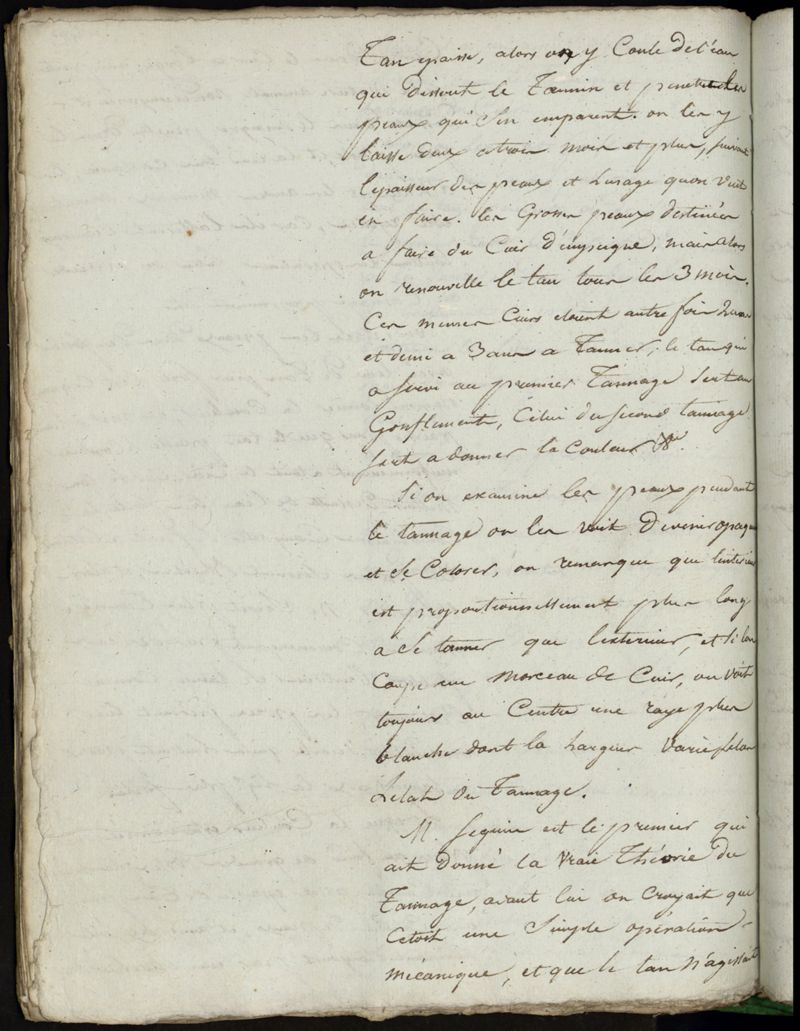 Tan epaisse, alors on y Coule de l'eau
qui dissout le Tannin et penetre les
peaux qui S'en emparent. on les y
laisse deux a trois mois et plus, suivant
lepaisseur des peaux et Lusage quon veut
en faire. les Grosses peaux destinées
a faire du Cuir mais alors
on renouvelle le tan tous les 3 mois.
Ces memes Cuirs etoient autre fois 2 ans
et demi a 3 ans a Tanner; le tan qui
a servi au premier Tannage Sert au
Gonflement, Celui du Second tannage
sert a donner la Couleur &a.
Si on examine les peaux pendant
le tannage on les voit Devenir opaques
et Se Colorer, on remarque que linterieur
est proportionnellement plus long
a Se tanner que lexterieur, et Si lon
Coupe un morceau de Cuir, on voit
toujours au Centre une raye plus
blanche dont la largeur Varie Selon
Letat du Tannage.
M. Seguin est le premier qui
ait Donné la Vraie Théorie du
Tannage, avant lui on Croyait que
Cetoit une Simple opération
mécanique, et que le tan N'agissait